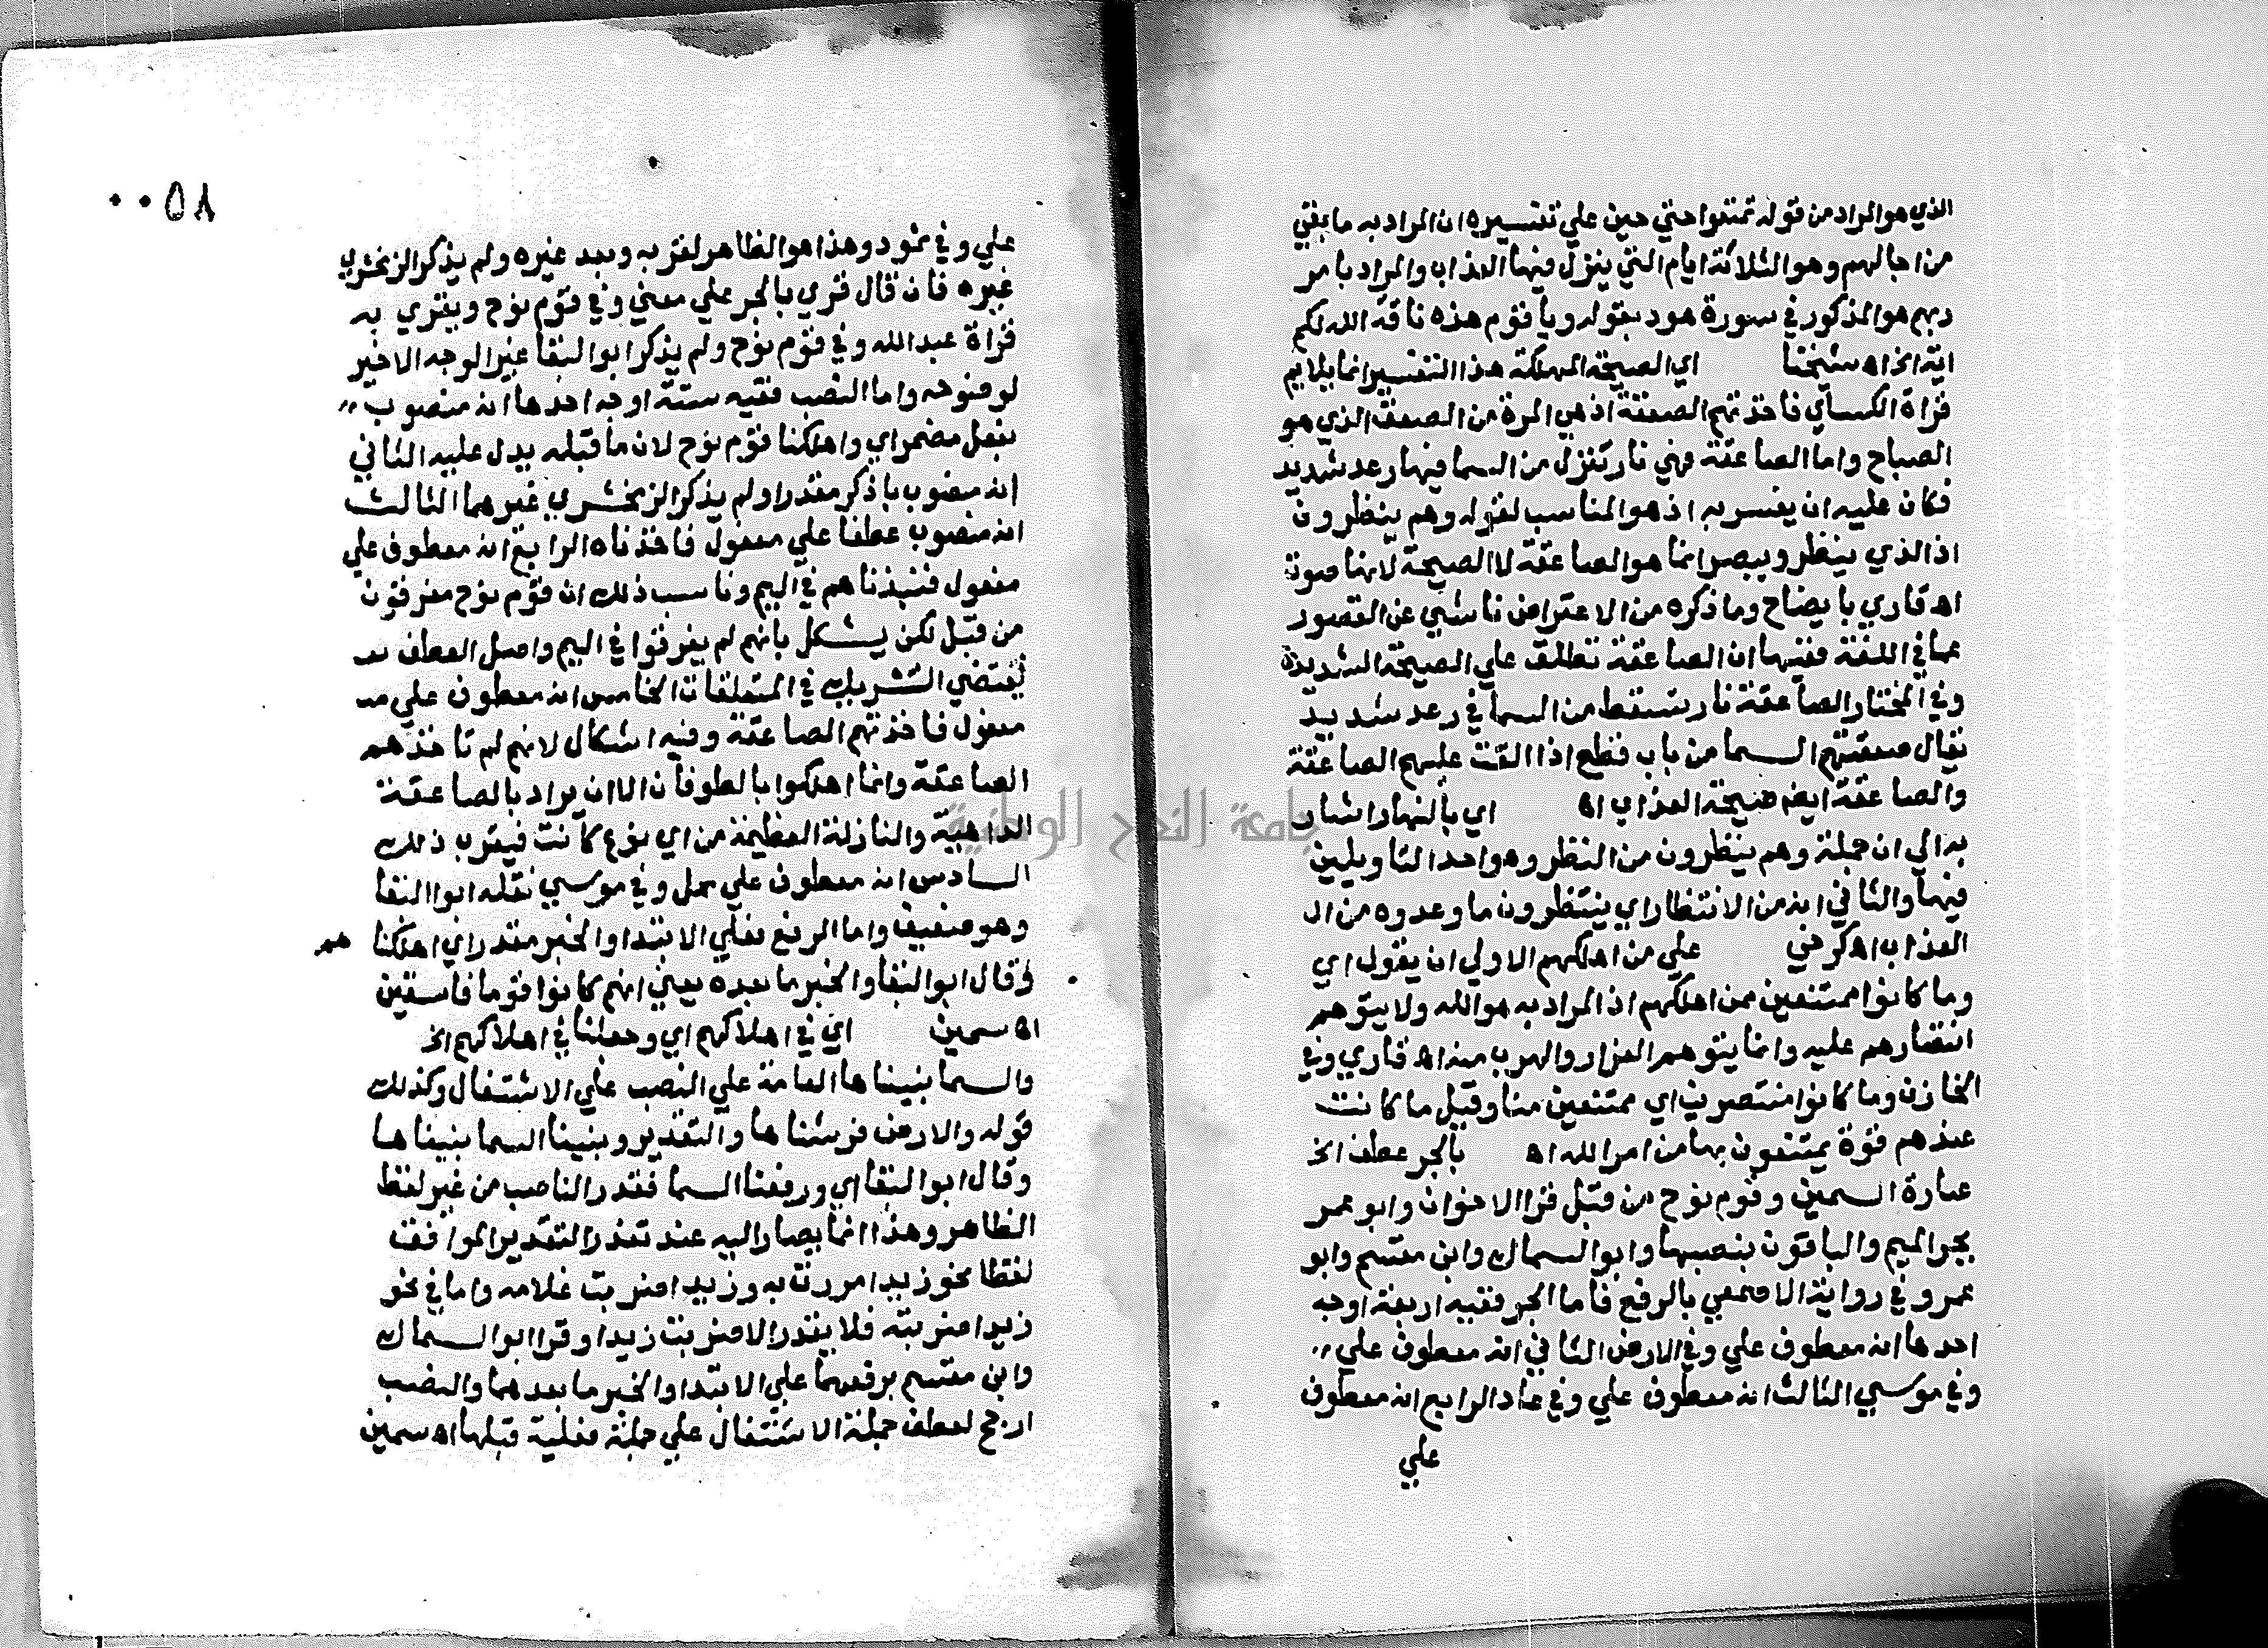 الذي هو المراد من قوله تمتعوا حتي حين علي تفسيره ان المراد به ما بقي
من اجالهم وهو الثلاثة ايام التي ينزل فيها العذاب والمراد بامر
ربهم هو المذكور في سورة هود بقوله ويا قوم هذه ناقة الله لكم
اية الخ اه شيخنا اي الصيحة المهلكة هذا التفسير انما يلايم
قراة الكساي فاخذتهم الصعقة اذ هي المرة من الصعق الذي هو
الصياح واما الصاعقة فهي نار تنزل من السما فيها رعد شديد
فكان عليه ان يفسر به اذ هو المناسب لقوله وهم ينظرون
اذ الذي ينظر ويبصر انما هو الصاعقة لا الصيحة لانها صوت
اه قاري بايضاح وما ذكره من الاعتراض ناشي عن القصور
عما في اللغة ففيها ان الصاعقة تطلق علي الصيحة الشديدة
وفي المختار الصاعقة نار تسقط من السما في رعد شديد
يقال صعقتهم السما من باب قطع اذا القت عليهم الصاعقة
والصاعقة ايضا صيحة العذاب اه اي بالنهار اشار
به الي ان جملة وهم ينظرون من النظر وهو احد التاويلين
فيها والثاني انه من الانتظار اي ينتظرون ما وعدوه من ال
العذاب اه كرخي علي من اهلكهم الاولي ان يقول اي
وما كانوا ممتنعين ممن اهلكهم اذ المراد به هو الله ولا يتوهم
انتصارهم عليه وانما يتوهم الفرار والهرب منه اه قاري وفي
الخازن وما كانوا منتصرين اي ممتنعين منا وقيل ما كانت
عندهم قوة يمتنعون بها من امر الله اه بالجر عطف الخ
عبارة السمين وقوم نوح من قبل قرا الاخوان وابو عمر
بجر الميم والباقون بنصبها وابو السمال وابن مقسم وابو
عمرو في رواية الاصمعي بالرفع فاما الجر ففيه اربعة اوجه
احدها انه معطوف علي وفي الارض الثاني انه معطوف علي
وفي موسي الثالث انه معطوف علي وفي عاد الرابع انه معطوف
علي
٠٠٥٨
علي وفي ثمود وهذا هو الظاهر لقربه وبعد غيره ولم يذكر الزمخشري
غيره فان قال قري بالجر علي معني وفي قوم نوح ويقوي به
قراة عبد الله وفي قوم نوح ولم يذكر ابو البقا غير الوجه الاخير
لوضوحه واما النصب ففيه ستة اوجه احدها انه منصوب
بفعل مضمر اي واهلكنا قوم نوح لان ما قبله يدل عليه الثاني
انه منصوب باذكر مقدرا ولم يذكر الزمخشري غيرهما الثالث
انه منصوب عطفا علي مفعول فاخذناه الرابع انه معطوف علي
مفعول فنبذناهم في اليم وناسب ذلك ان قوم نوح مغرقون
من قبل لكن يشكل بانهم لم يغرقوا في اليم واصل العطف
يقتضي التشريك في المتعلقات الخامس انه معطوف علي
مفعول فاخذتهم الصاعقة وفيه اشكال لانهم لم تاخذهم
الصاعقة وانما اهلكوا بالطوفان الا ان يراد بالصاعقة
الداهية والنازلة العظيمة من اي نوع كانت فيقرب ذلك
السادس انه معطوف علي محل وفي موسي نقله ابو البقا
وهو ضعيف واما الرفع فعلي الابتدا والخبر مقدر اي اهلكنا هم
وقال ابو البقا والخبر ما بعده يعني انهم كانوا قوما فاسقين
اه سمين اي في اهلاكهم اي وجعلنا في اهلاكهم الخ
والسما بنيناها العامة علي النصب علي الاشتغال وكذلك
قوله والارض فرشناها والتقدير وبنينا السما بنيناها
وقال ابو البقا اي ورفعنا السما فقدر الناصب من غير لفظ
الظاهر وهذا انما يصار اليه عند تعذر التقدير الموافق
لفظا نحو زيدا مررت به وزيدا ضربت غلامه واما في نحو
زيدا ضربته فلا يقدر الا ضربت زيدا وقرا ابو السمال
وابن مقسم برفعهما علي الابتدا والخبر ما بعدهما والنصب
ارجح لعطف جملة الاشتغال علي جملة فعلية قبلها اه سمين
جامعة النجاح الوطنية